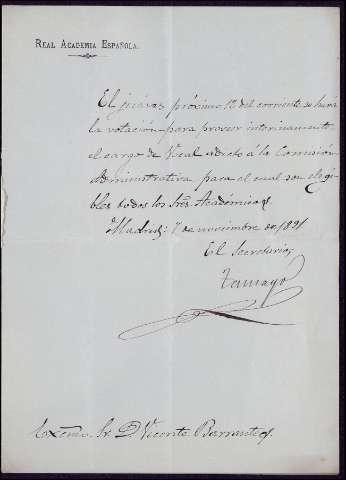 REAL ACADEMIA ESPAÑOLA.
El juéves próximo 12 del corriente se hará
la votación para proveer interinamente
el cargo de Vocal adicto á la Comisión
Administrativa para el cual son elegi-
bles todos los Sres. Académicos.
Madrid, 7 de noviembre de 1891
El Secretario,
Tamayo
Excmo. Sr. D. Vicente Barrantes.